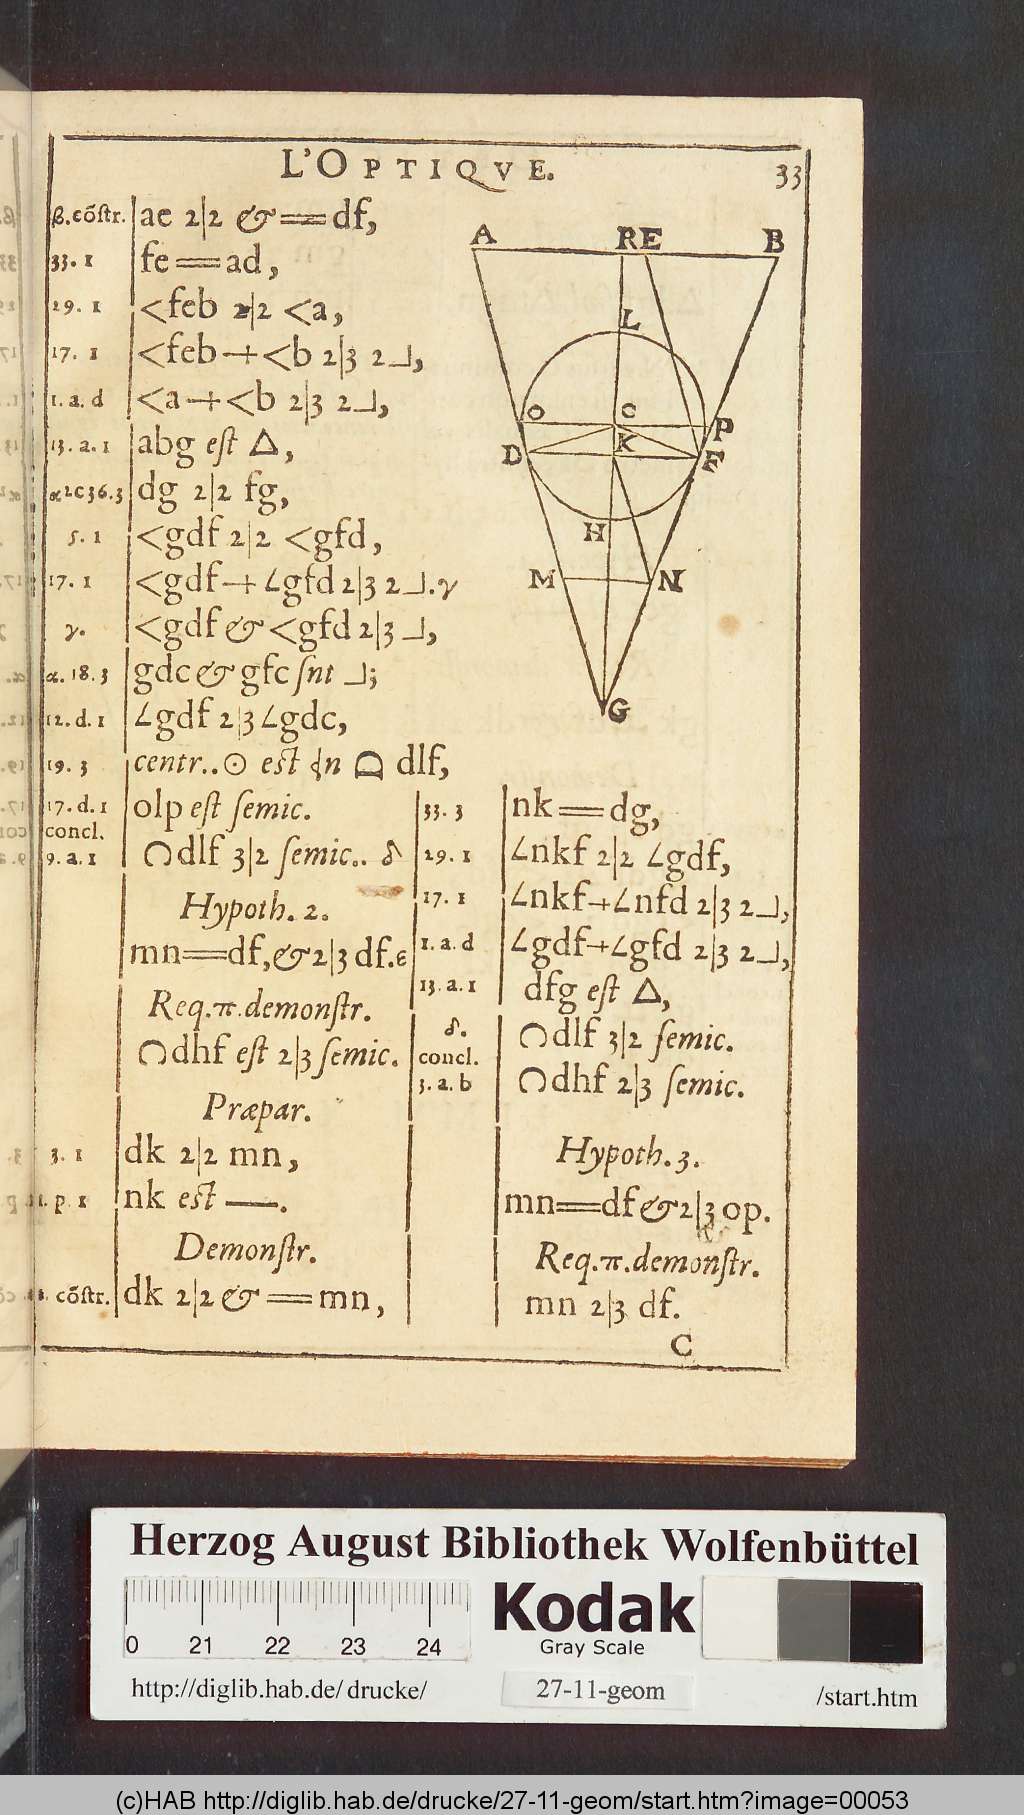 L'OPTIQVE. 33
β.cõstr. ae 2|2 & == df,
33. 1 fe==ad,
29. 1 <feb 2|2 <a,
17. 1 <feb + <b 2|3 2⅃,
1. a. d <a + <b 2|3 2⅃,
13. a. 1 abg est △,
α2c36.3 dg 2|2 fg,
5. 1 <gdf 2|2 <gfd,
17. 1 <gdf + ∠gfd 2|3 2⅃.γ
γ. <gdf & <gfd 2|3 ⅃,
α. 18. 3 gdc & gfc snt ⅃;
12. d. 1 ∠gdf 2|3 ∠gdc,
19. 3 centr..⊙ est dlf,
17. d. 1 olp est semic.
concl.
9. a. 1 ◠dlf 3|2 semic.. δ
Hypoth. 2.
mn==df,&2|3 df.ε
Req.π.demonstr.
◠dhf est 2|3 semic.
Præpar.
3. 1 dk 2|2 mn,
1. p. 1 nk est —.
Demonstr.
cõstr. dk 2|2 & == mn,
33. 3 nk == dg,
29. 1 ∠nkf 2|2 ∠gdf,
17. 1 ∠nkf+∠nfd 2|3 2⅃,
1. a. d ∠gdf+∠gfd 2|3 2⅃,
13. a. 1 dfg est △,
δ. ◠dlf 3|2 semic.
concl.
3. a. b ◠dhf 2|3 semic.
Hypoth. 3.
mn==df & 2|3 op.
Req.π.demonstr.
mn 2|3 df.
C
A R E B
L
O C P
D K F
H
M N
G
Herzog August Bibliothek Wolfenbüttel
0 21 22 23 24
Kodak
Gray Scale
http://diglib.hab.de/drucke/ 27-11-geom /start.htm
(c)HAB http://diglib.hab.de/drucke/27-11-geom/start.htm?image=00053